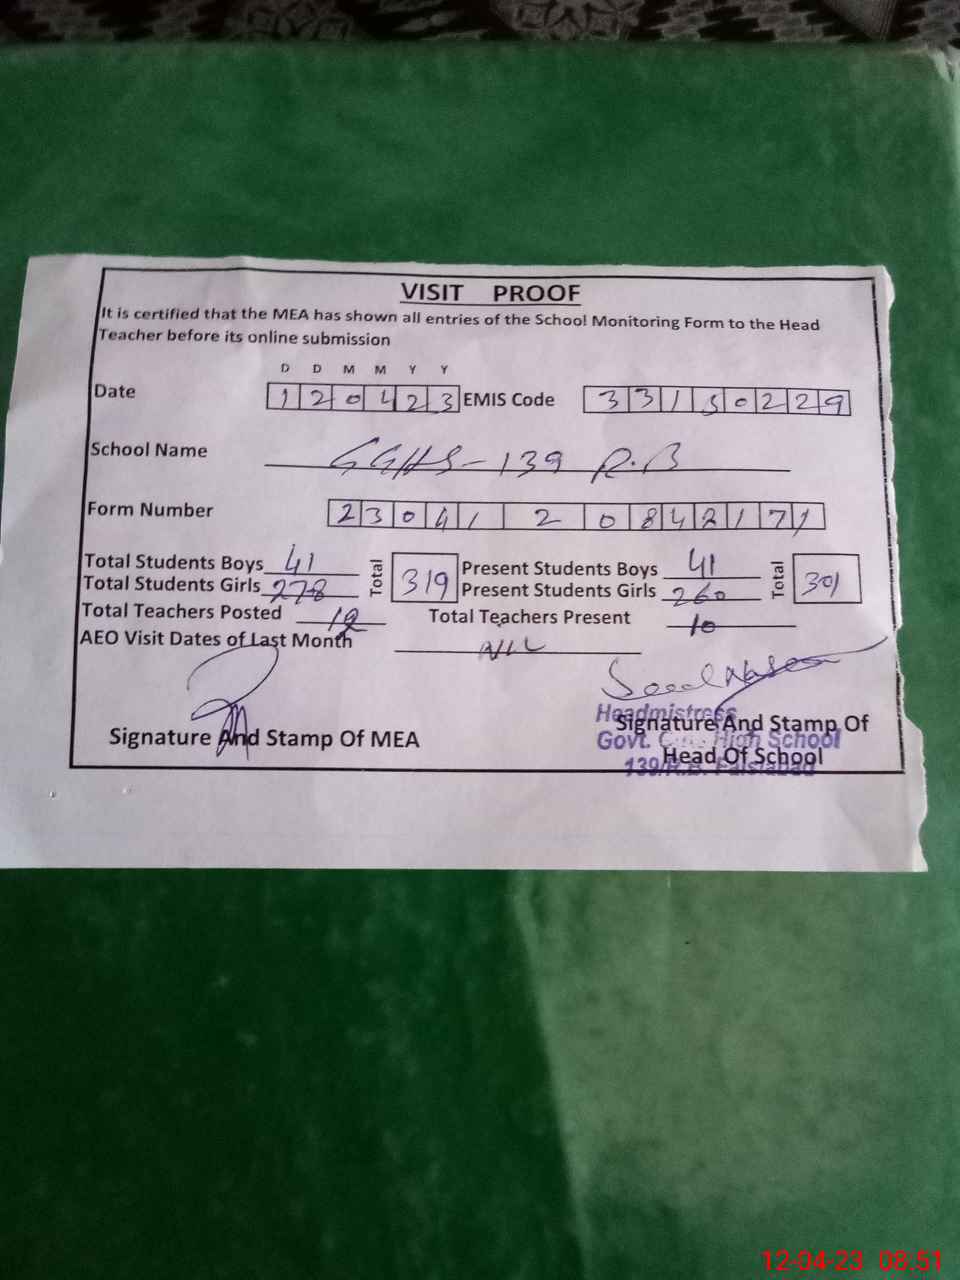 VISIT PROOF
It is certified that the MEA has shown all entries of the School Monitoring Form to the Head
Teacher before its online submission
D D M M Y Y
Date 1 2 0 4 2 3 EMIS Code 3 3 1 3 0 2 2 9
School Name GGHS-139 R.B
Form Number 2 3 0 4 1 2 0 8 4 2 1 7 1
Total Students Boys 41 Total 319 Present Students Boys 41 Total 301
Total Students Girls 278 Present Students Girls 260
Total Teachers Posted 12 Total Teachers Present 10
AEO Visit Dates of Last Month NIL
Headmistress
Signature And Stamp Of MEA Signature And Stamp Of
Govt. High School
Head Of School
139/R.B. Faisalabad
12-04-23 08.51